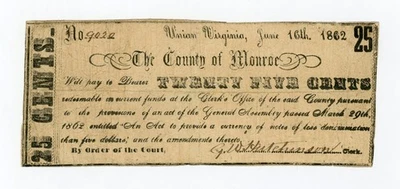 No. 9020 Union Virginia, June 16th. 1862 25
The County of Monroe
Will pay to Bearer TWENTY FIVE CENTS
redeemable in current funds at the Clerk's Office of the said County pursuant
to the provisions of an act of the General Assembly passed March 29th,
1862 entitled "An Act to provide a currency of notes of less denomination
than five dollars", and the amendments thereto.
By Order of the Court, Clerk.
25 CENTS.